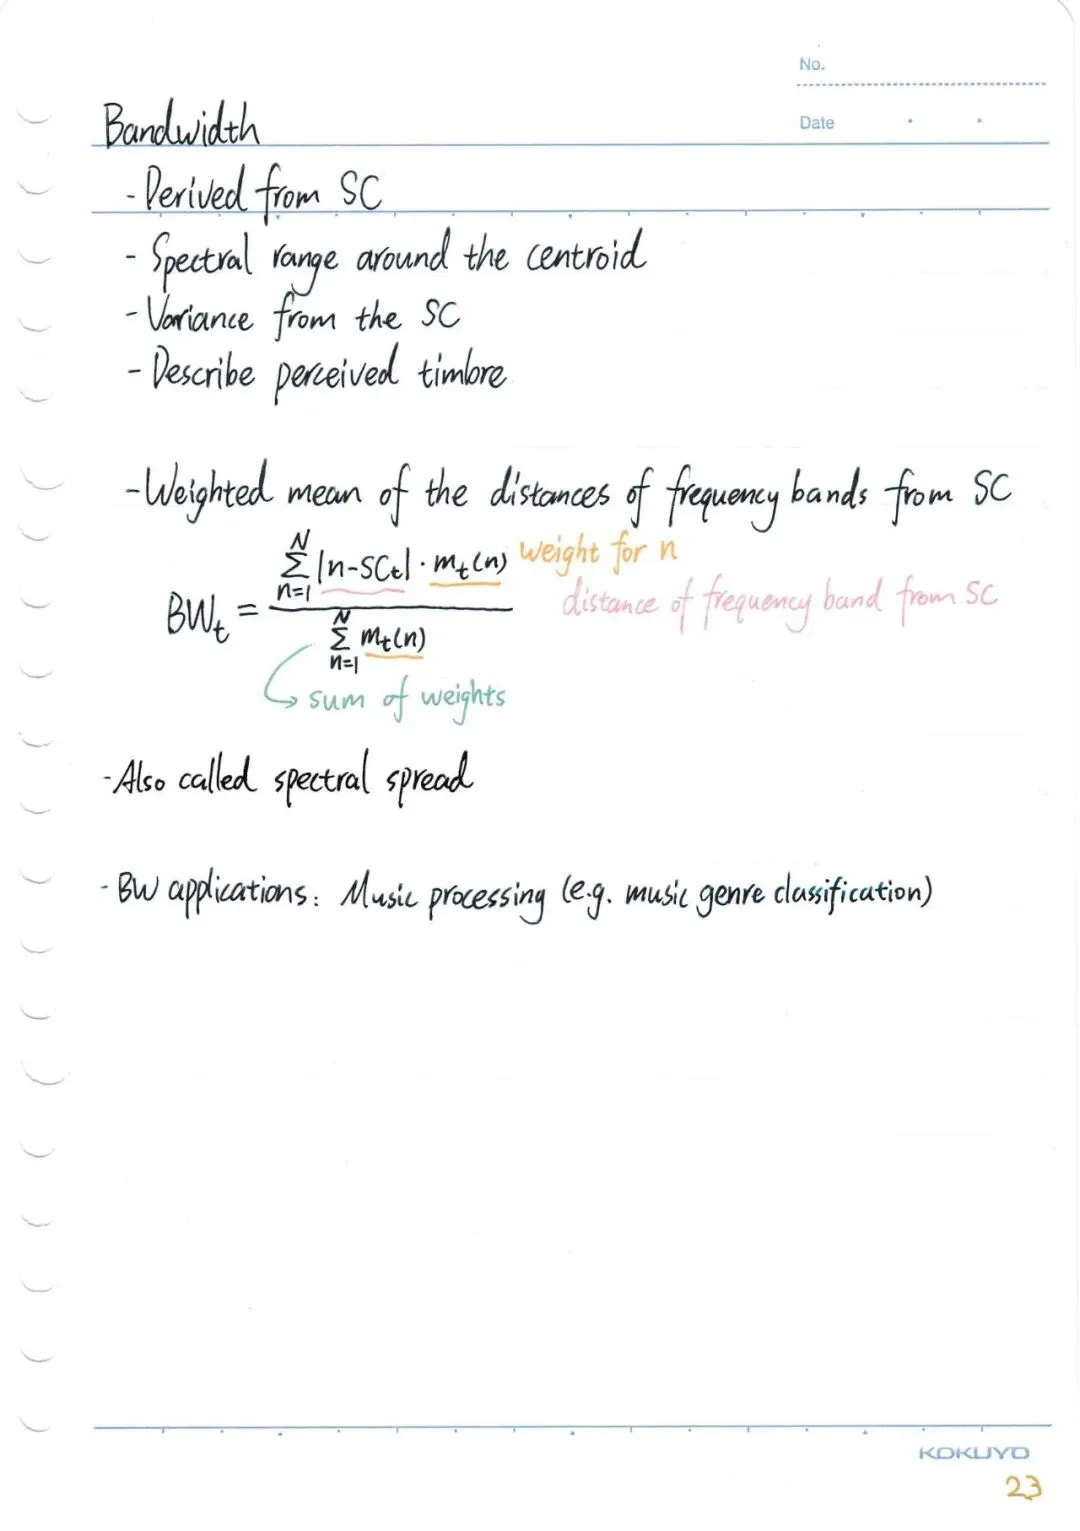 No.
Date
Bandwidth
- Derived from SC
- Spectral range around the centroid
- Variance from the SC
- Describe perceived timbre
- Weighted mean of the distances of frequency bands from SC
BW_t = \frac{\sum_{n=1}^{N} |n-SC_t| \cdot m_t(n)}{\sum_{n=1}^{N} m_t(n)}
weight for n
distance of frequency band from SC
↳ sum of weights
- Also called spectral spread
- BW applications: Music processing (e.g. music genre classification)
KOKUYO
23